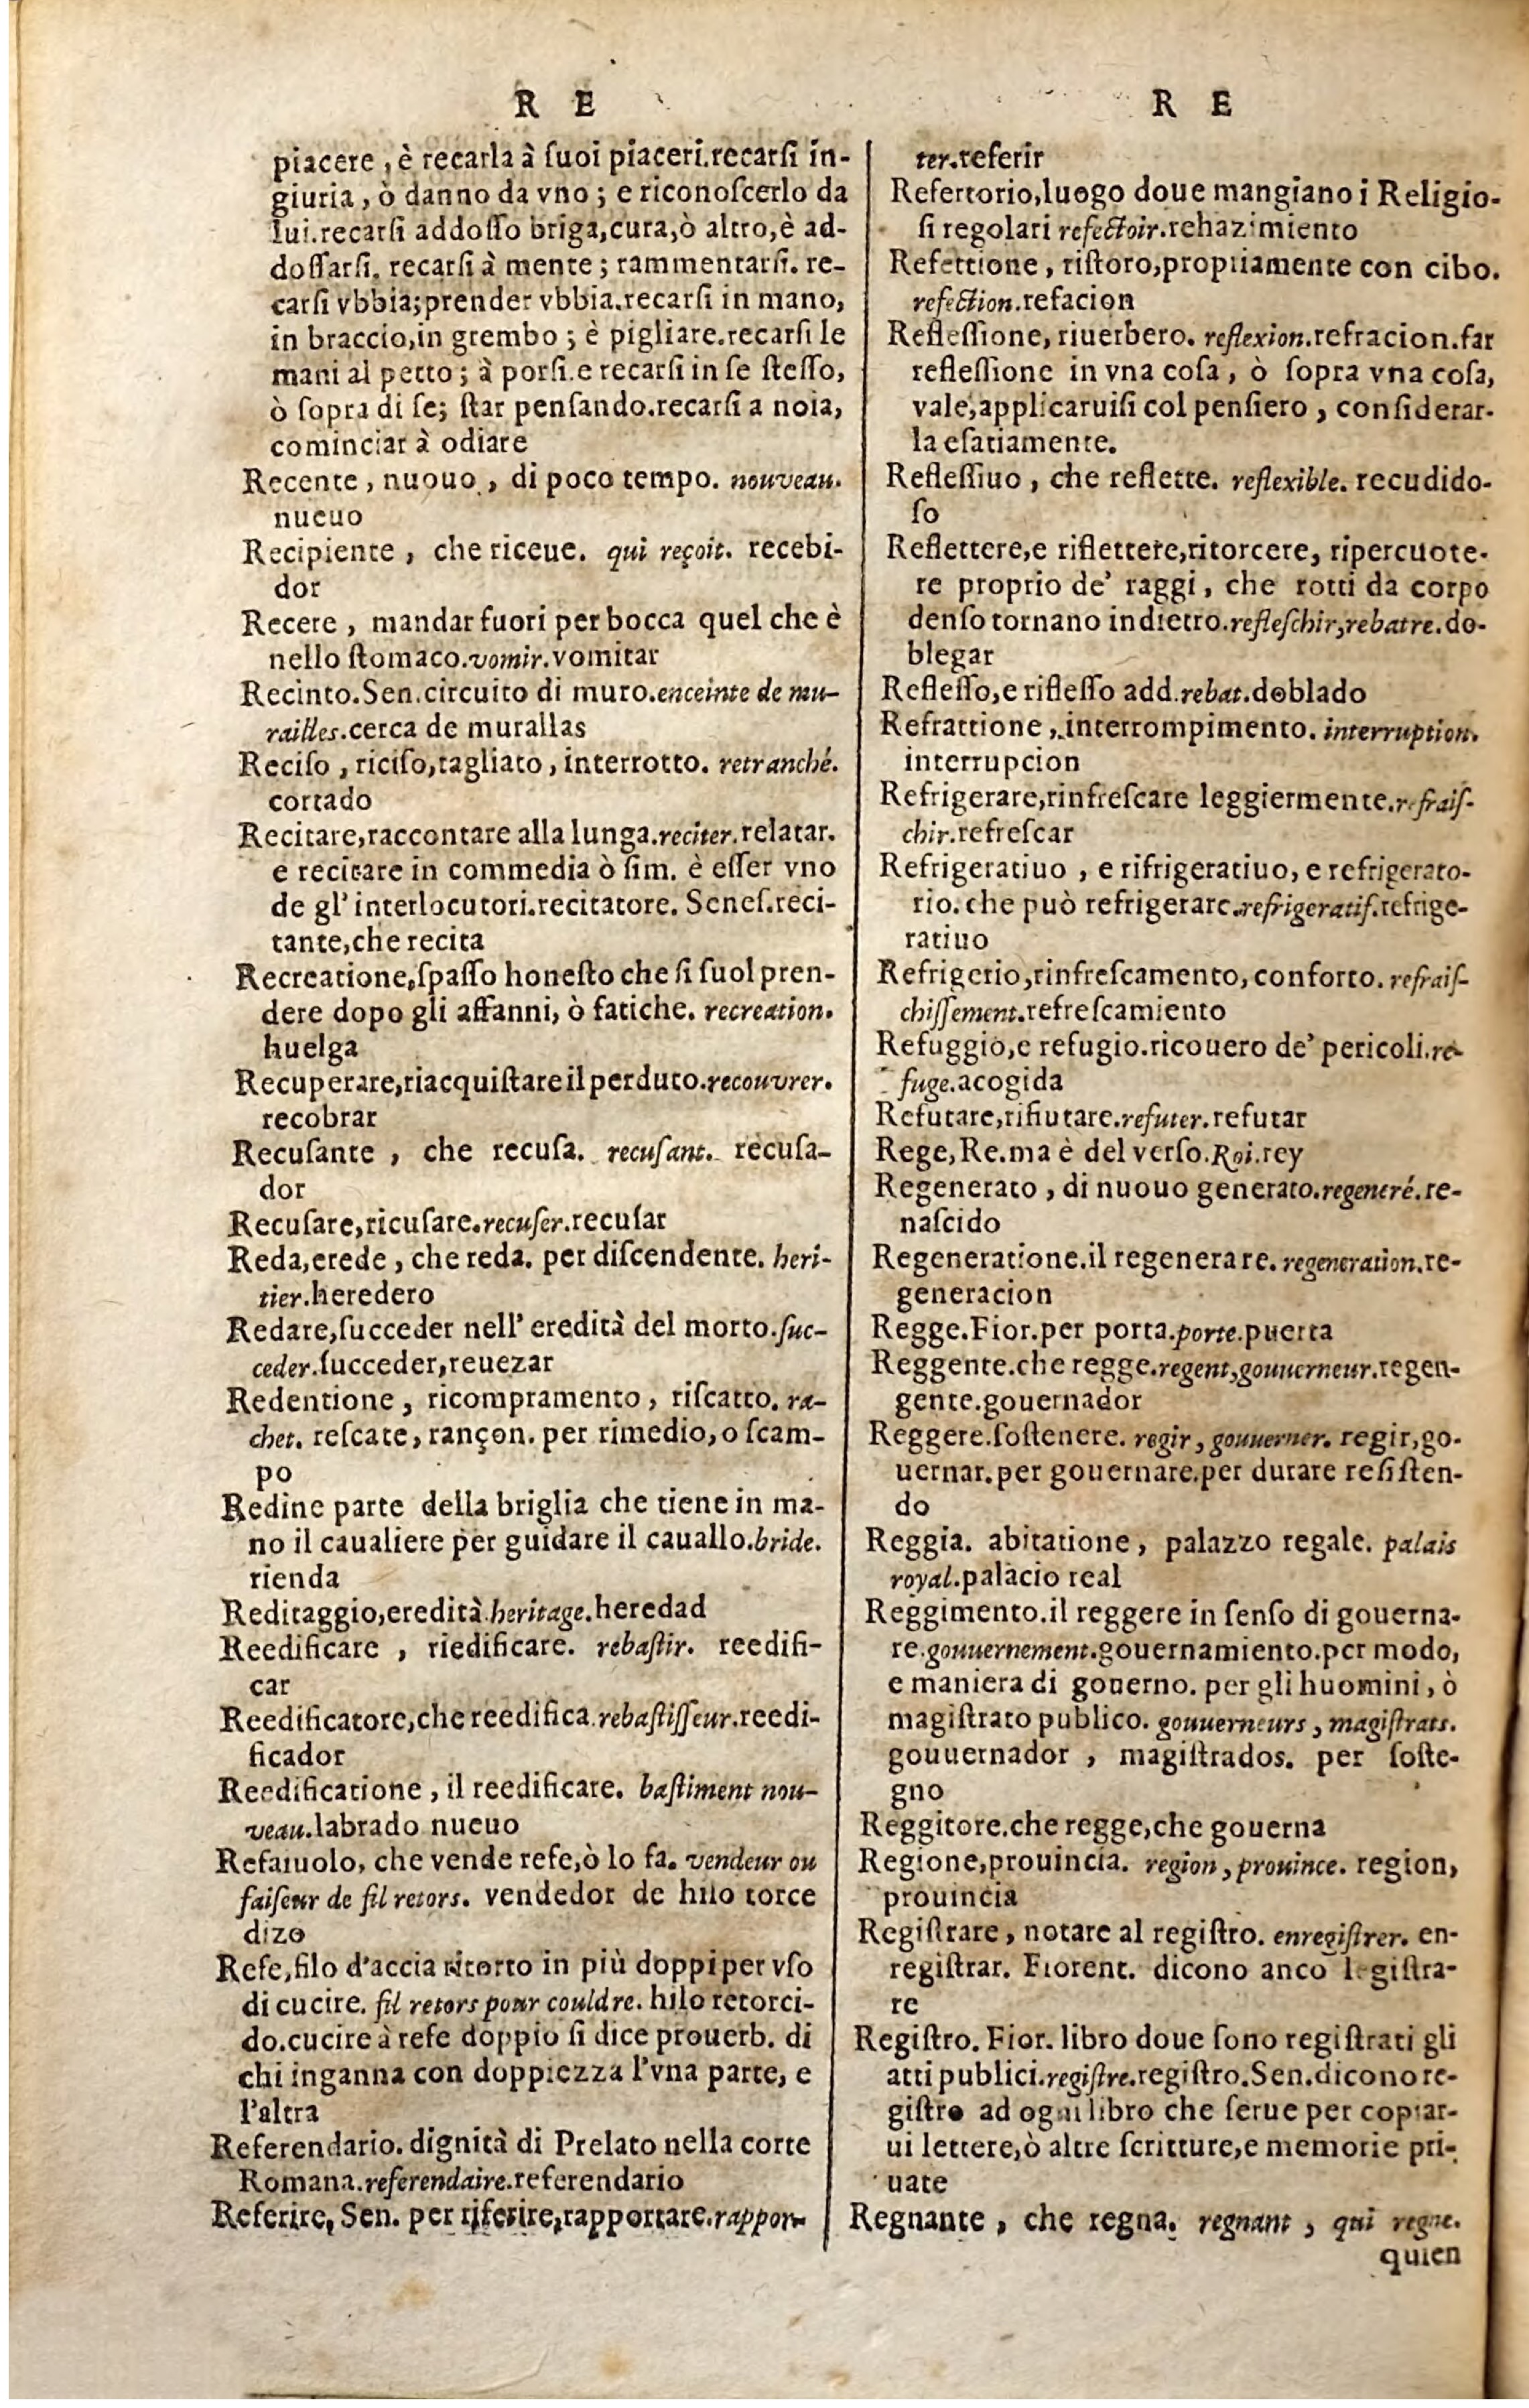 R E
piacere, è recarla à ſuoi piaceri.recarſi in-
giuria, ò danno da vno; e riconoſcerlo da
lui.recarſi addoſſo briga,cura,ò altro,è ad-
doſſarſi. recarſi à mente; rammentarſi. re-
carſi vbbia;prender vbbia.recarſi in mano,
in braccio,in grembo; è pigliare.recarſi le
mani al petto; à porſi.e recarſi in ſe ſteſſo,
ò ſopra di ſe; ſtar penſando.recarſi a noia,
cominciar à odiare
Recente, nuouo, di poco tempo. nouveau.
nueuo
Recipiente, che riceue. qui reçoit. recebi-
dor
Recere, mandar fuori per bocca quel che è
nello ſtomaco.vomir.vomitar
Recinto.Sen.circuito di muro.enceinte de mu-
railles.cerca de murallas
Reciſo, riciſo,tagliato, interrotto. retranché.
cortado
Recitare,raccontare alla lunga.reciter.relatar.
e recitare in commedia ò ſim. è eſſer vno
de gl' interlocutori.recitatore. Seneſ.reci-
tante,che recita
Recreatione,ſpaſſo honeſto che ſi ſuol pren-
dere dopo gli affanni, ò fatiche. recreation.
huelga
Recuperare,riacquiſtare il perduto.recouvrer.
recobrar
Recuſante, che recuſa. recuſant. recuſa-
dor
Recuſare,ricuſare.recuſer.recuſar
Reda,erede, che reda. per diſcendente. heri-
tier.heredero
Redare,ſucceder nell' eredità del morto.ſuc-
ceder.ſucceder,reuezar
Redentione, ricompramento, riſcatto. ra-
chet. reſcate, rançon. per rimedio, o ſcam-
po
Redine parte della briglia che tiene in ma-
no il caualiere per guidare il cauallo.bride.
rienda
Reditaggio,eredità.heritage.heredad
Reedificare, riedificare. rebaſtir. reedifi-
car
Reedificatore,che reedifica.rebaſtiſſeur.reedi-
ficador
Reedificatione, il reedificare. baſtiment nou-
veau.labrado nueuo
Refaiuolo, che vende refe,ò lo fa. vendeur ou
faiſeur de fil retors. vendedor de hilo torce
dizo
Refe,filo d'accia ritorto in più doppi per vſo
di cucire. fil retors pour couldre. hilo retorci-
do.cucire à refe doppio ſi dice prouerb. di
chi inganna con doppiezza l'vna parte, e
l'altra
Referendario. dignità di Prelato nella corte
Romana.referendaire.referendario
Referire, Sen. per riferire,rapportare.rappor-
R E
ter.referir
Refettorio,luogo doue mangiano i Religio-
ſi regolari refectoir.rehazimiento
Refettione, riſtoro,propriamente con cibo.
refection.refacion
Refleſſione, riuerbero. reflexion.refracion.far
refleſſione in vna coſa, ò ſopra vna coſa,
vale,applicaruiſi col penſiero, conſiderar-
la eſatiamente.
Refleſſiuo, che reflette. reflexible. recudido-
ſo
Reflettere,e riflettere,ritorcere, ripercuote-
re proprio de' raggi, che rotti da corpo
denſo tornano indietro.refleſchir,rebatre.do-
blegar
Refleſſo,e rifleſſo add.rebat.doblado
Refrattione, interrompimento. interruption.
interrupcion
Refrigerare,rinfreſcare leggiermente.refraiſ-
chir.refreſcar
Refrigeratiuo, e rifrigeratiuo, e refrigerato-
rio. che può refrigerare.refrigeratif.refrige-
ratiuo
Refrigerio,rinfreſcamento, conforto. refraiſ-
chiſſement.refreſcamiento
Refuggio,e refugio.ricouero de' pericoli.re-
fuge.acogida
Refutare,rifiutare.refuter.refutar
Rege, Re.ma è del verſo.Roi.rey
Regenerato, di nuouo generato.regeneré.re-
naſcido
Regeneratione.il regenerare. regeneration.re-
generacion
Regge.Fior.per porta.porte.puerta
Reggente.che regge.regent,gouuerneur.regen-
gente.gouernador
Reggere.ſoſtenere. regir, gouuerner. regir,go-
uernar.per gouernare.per durare reſiſten-
do
Reggia. abitatione, palazzo regale. palais
royal.palacio real
Reggimento.il reggere in ſenſo di gouerna-
re.gouuernement.gouernamiento.per modo,
e maniera di gouerno. per gli huomini, ò
magiſtrato publico. gouuerneurs, magiſtrats.
gouuernador, magiſtrados. per ſoſte-
gno
Reggitore.che regge,che gouerna
Regione,prouincia. region, prouince. region,
prouincia
Regiſtrare, notare al regiſtro. enregiſtrer. en-
regiſtrar. Fiorent. dicono anco legiſtra-
re
Regiſtro. Fior. libro doue ſono regiſtrati gli
atti publici.regiſtre.regiſtro.Sen.dicono re-
giſtro ad ogni libro che ſerue per copiar-
ui lettere,ò altre ſcritture,e memorie pri-
uate
Regnante, che regna. regnant, qui regne.
quien